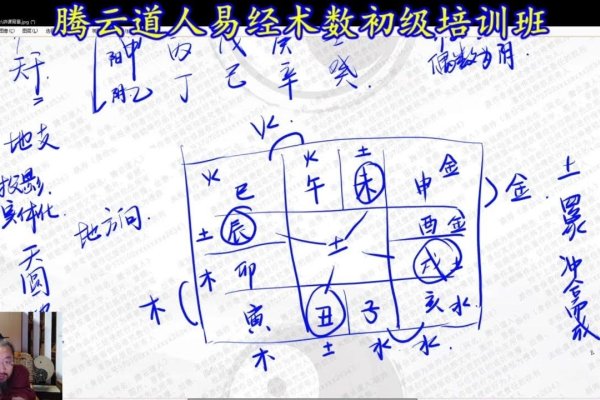 腾云道人易经术数初级培训班
天干 阳 甲 丙 戊 庚 壬
阴 乙 丁 己 辛 癸
偶数为阴
=
地支
投影
实体化
天圆
地方 问
火
火 巳 火 午 土 未 申 金
金
土 辰 土 酉 金
木 木 卯 戌 土
寅 丑 子 亥 水
木 土 水 水
土
冲